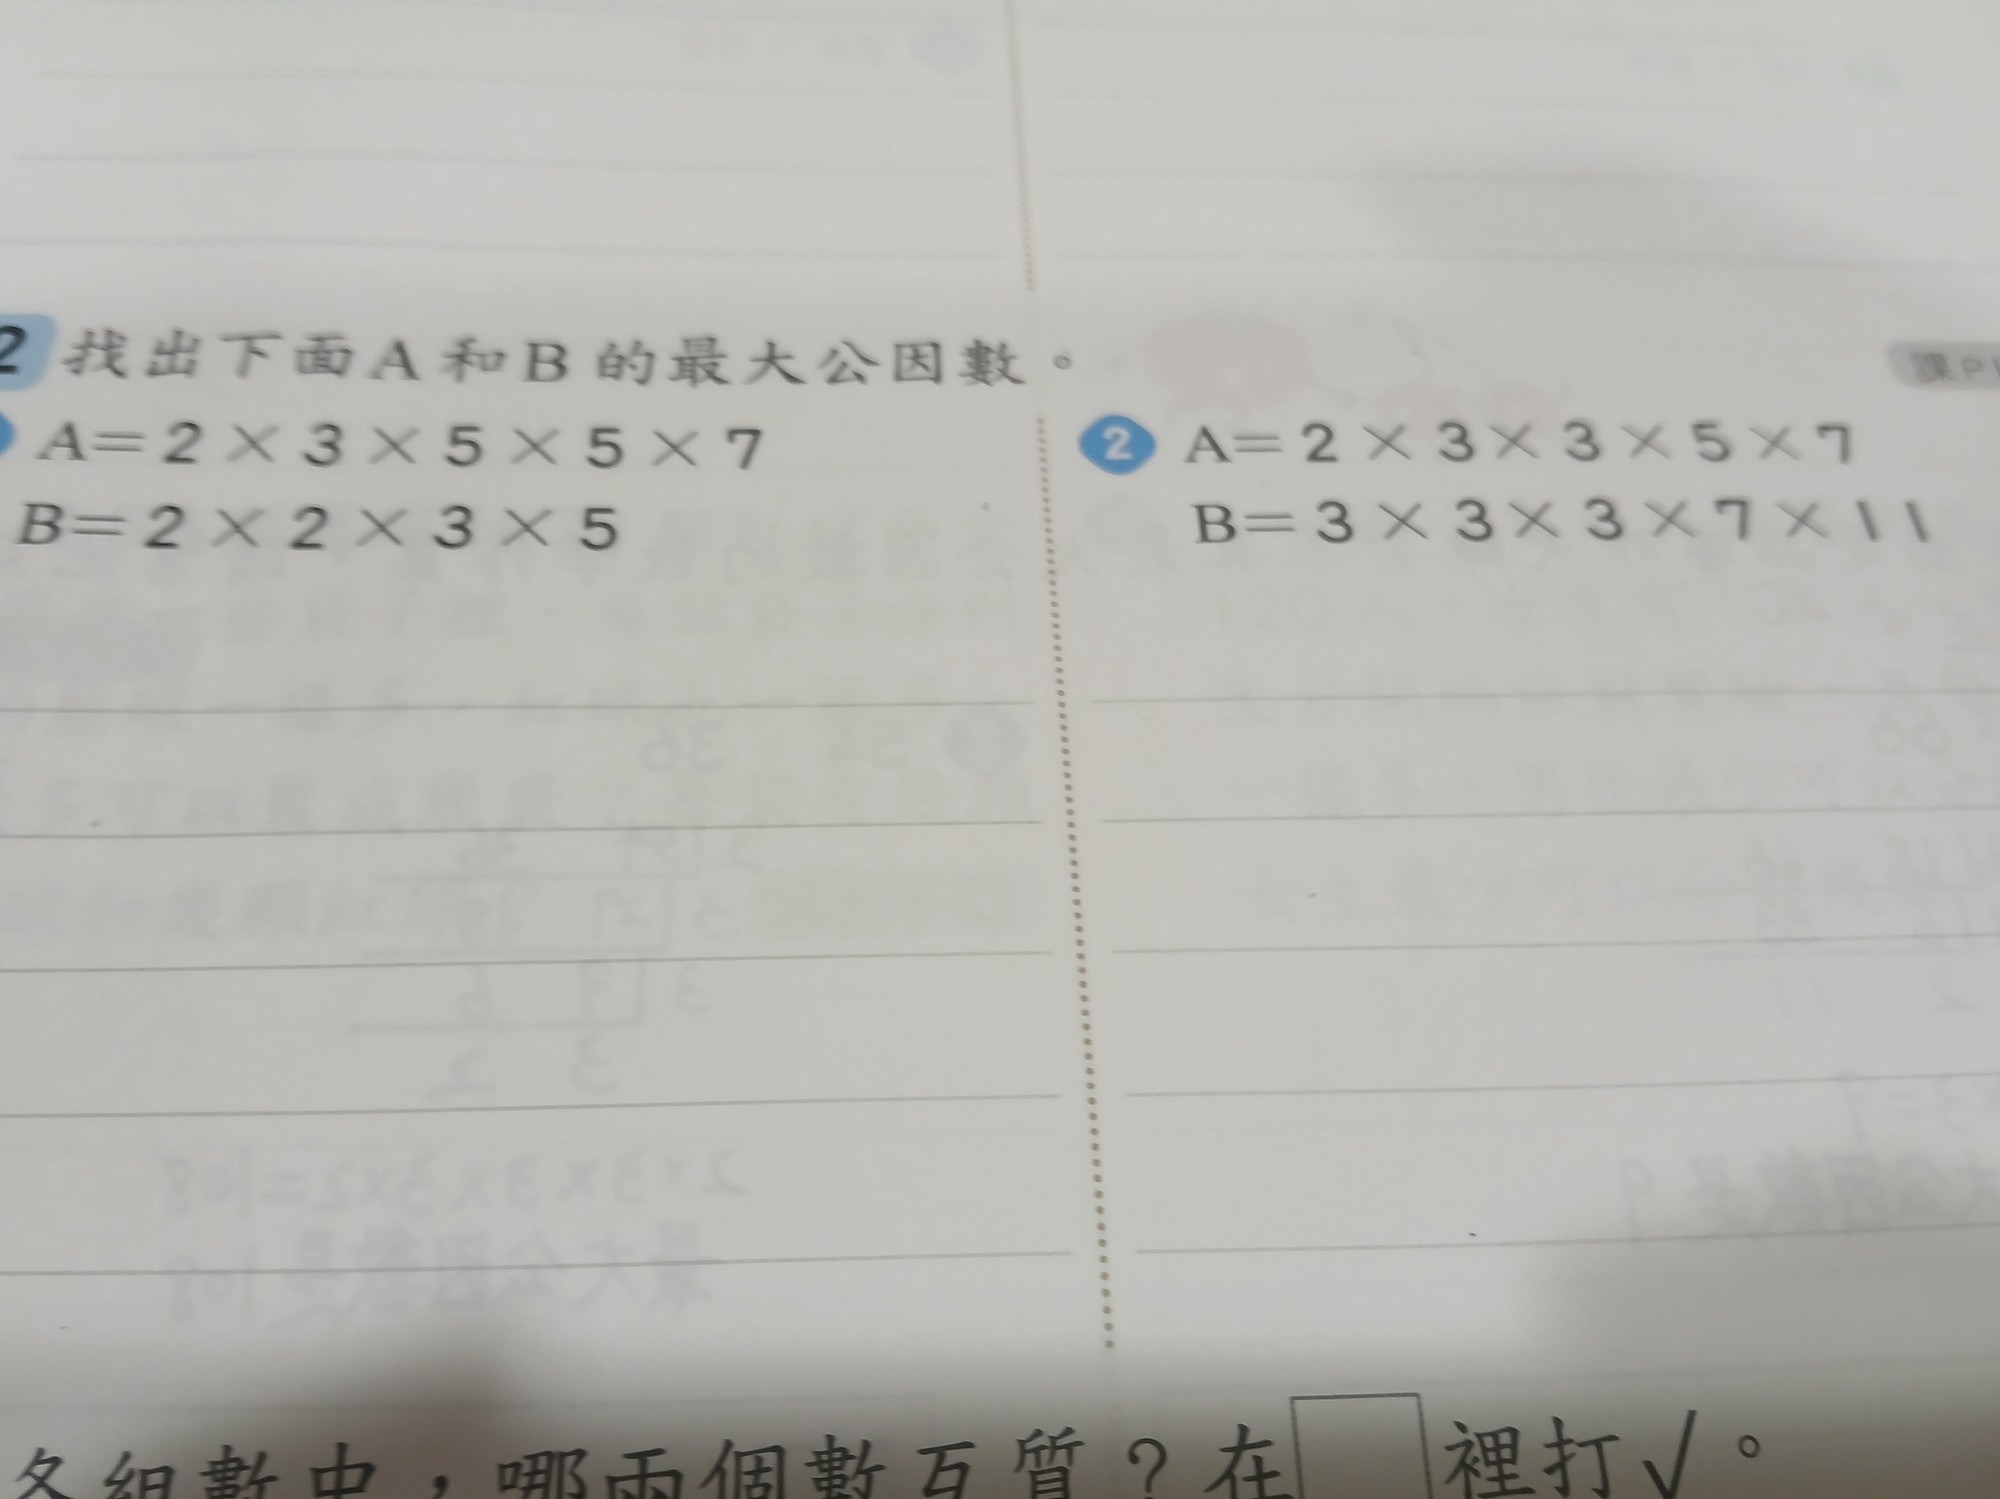 2 找出下面A和B的最大公因數。
A=2×3×5×5×7
B=2×2×3×5
2 A=2×3×3×5×7
B=3×3×3×7×11
各組數中，哪兩個數互質？在□裡打✓。